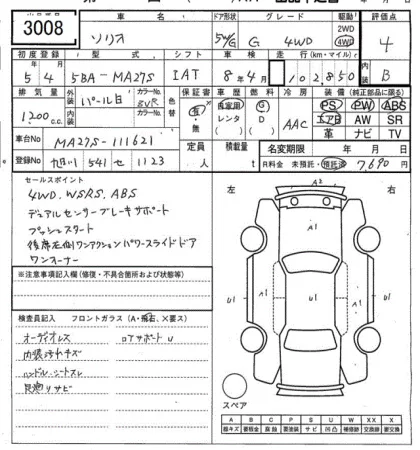 3008
車名
ソリオ
ドア形状
5W/G
グレード
G 4WD
駆動
2WD
4WD
評価点
4
初度登録
5年4月
型式
5BA-MA27S
シフト
IAT
車検
8年4月
走行(km・マイル)
102,850
内装
B
排気量
1200c.c.
外装
パール白
カラーNo.
ZVR
内装
カラーNo.
色替
保証書
有・無
車歴
自家用
レンタ
燃料
G
D
冷房
AAC
装備(純正部品に限る)
PS PW ABS
エアB AW SR
革 ナビ TV
車台No
MA27S-111621
登録No
旭川 541 せ 1123
定員
人
積載量
t
名変期限 年 月 日
R料金 未預託・預託済 7,690
セールスポイント
4WD.WSRS.ABS
デュアルセンサーブレーキサポート
プッシュスタート
後席左側ワンアクションパワースライドドア
ワンオーナー
※注意事項記入欄(修復・不具合箇所および状態等)
検査員記入 フロントガラス(A・飛石、×要ス)
オーディオレス
ロアサポートU
内装汚れキズ
ハンドル、シートスレ
足廻りサビ
左
右
A2
A1
U1
A1
U1
A1
スペア
A B C P S U W X XX